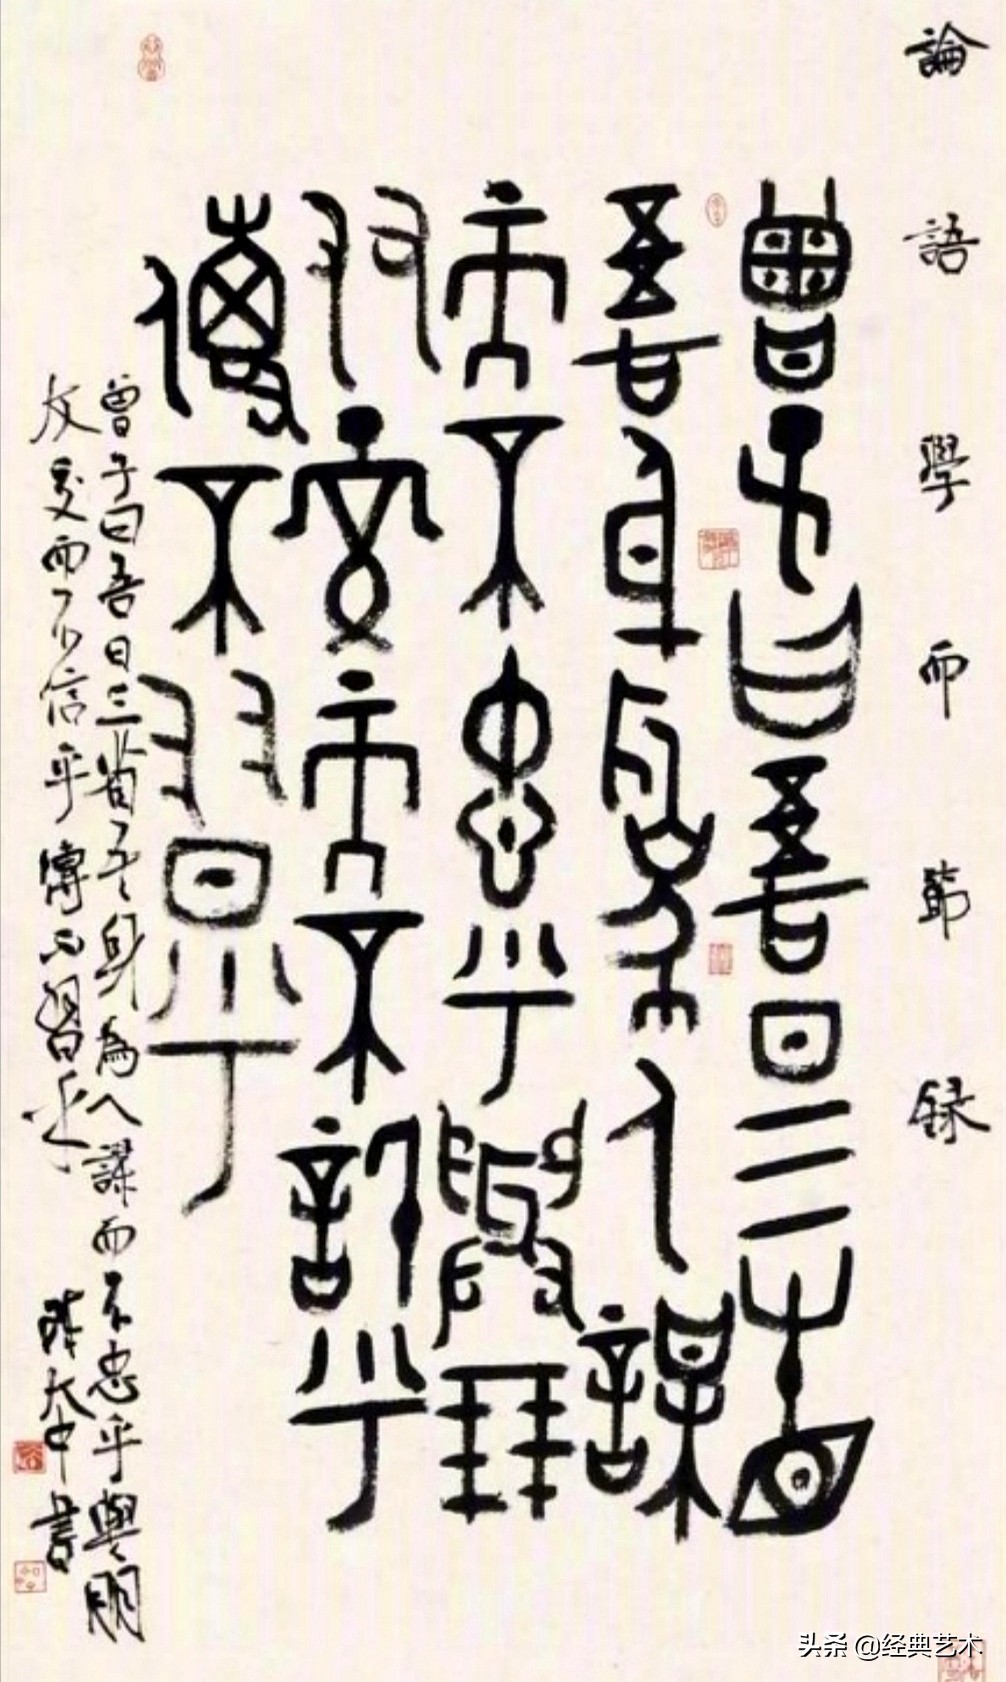 論語學而節録
曾子曰吾日三省
吾身為人謀
而不忠乎與朋
友交而不信乎
傳不習乎
曾子曰吾日三省吾身為人謀而不忠乎與朋
友交而不信乎傳不習乎 陳大中書
头条 @经典艺术